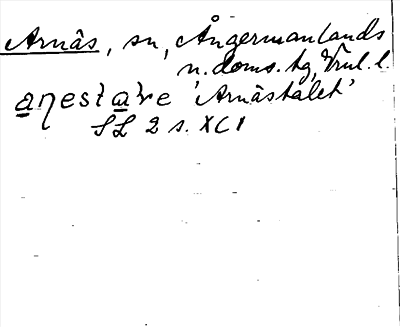 Arnäs, sn, Ångermanlands
n. doms. hg, Vnl. l.
aŋestaɽe 'Arnästalet'
SL 2 s. XCI